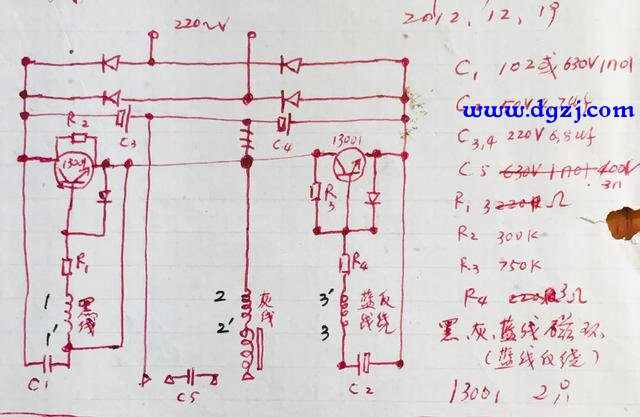 2012,12,19
220~V
C₁ 102或630V1n01
www.dgzj.com
C₃,₄ 220V6.8uf
C5 630V1n01 400V
3n
R₁ 3220R Ω
R₂ 300K
R₃ 750K
R₄ 220R 3Ω
黑灰蓝线磁环
(蓝线反绕)
13001 2只
R₂
C₃
C₄
13001
13001
R₃
R₁
R₄
1 黑线
1'
2 灰线
2'
3' 蓝反线绕
3
C1
C5
C2